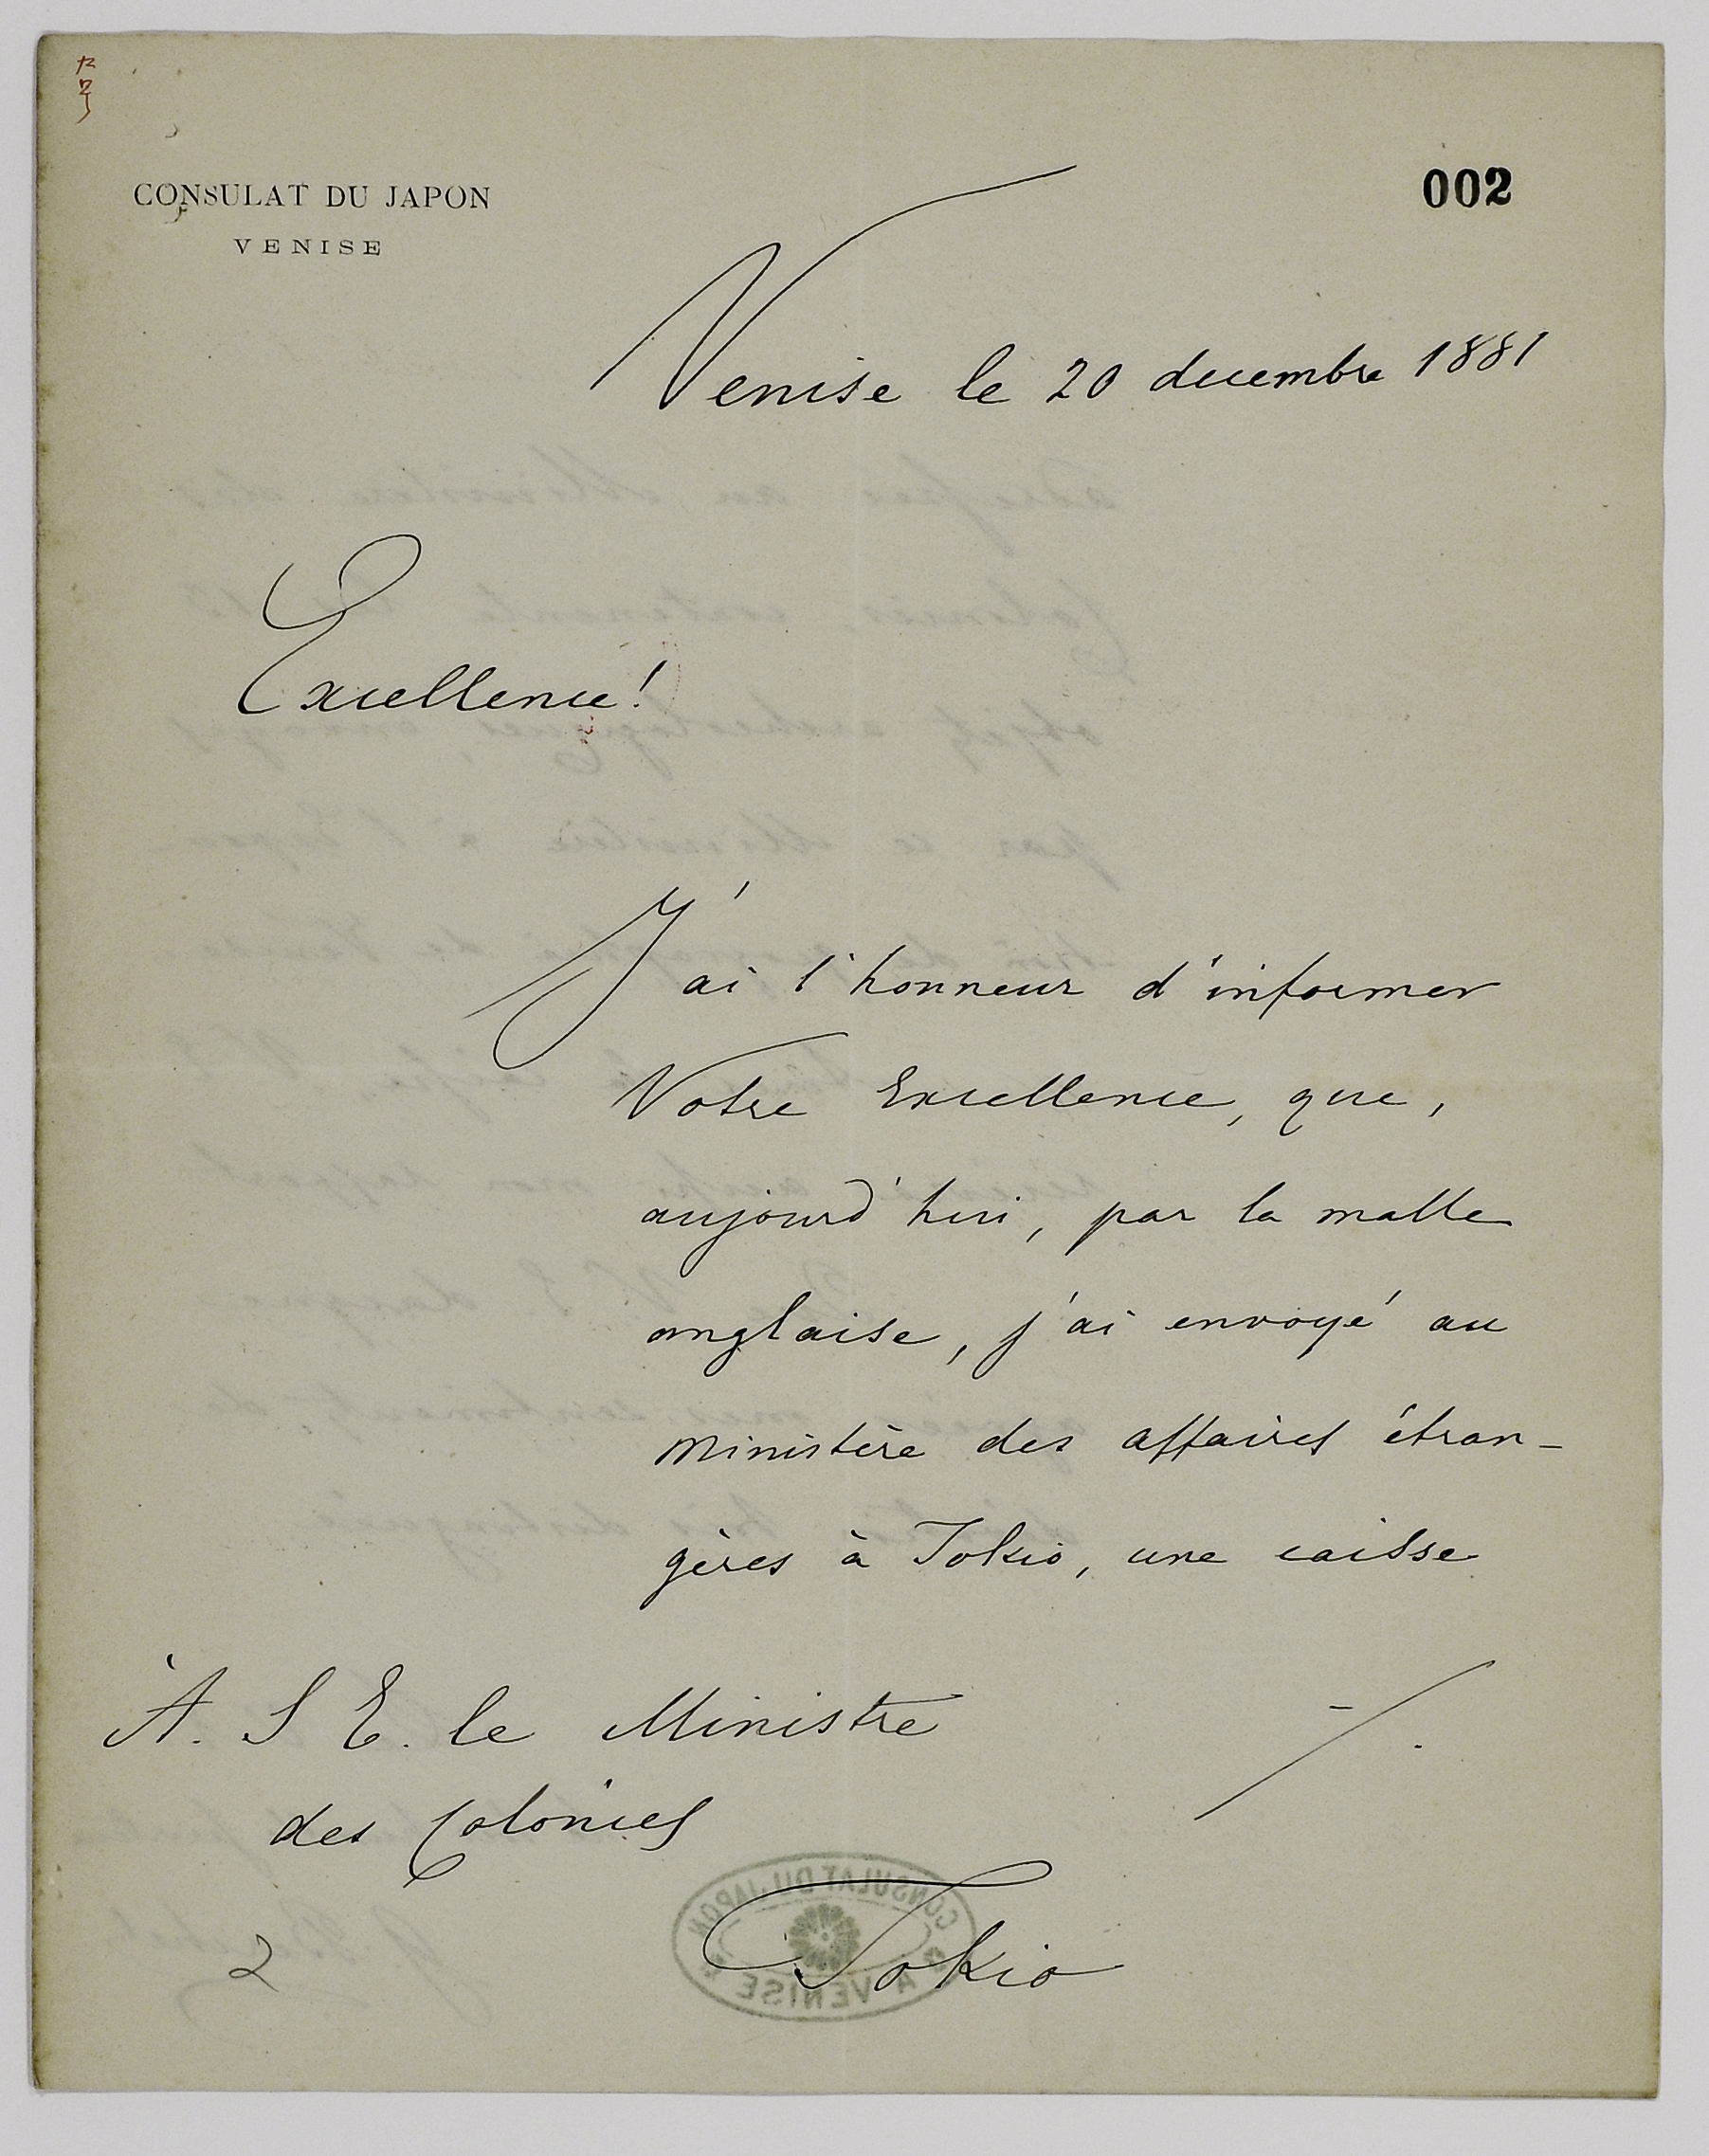 CONSULAT DU JAPON
VENISE
002
Venise le 20 decembre 1881
Excellence!
J'ai l'honneur d'informer
Votre Excellence, que,
aujourd'hui, par la malle
anglaise, j'ai envoyé au
Ministère des affaires étran-
gères à Tokio, une caisse
À. S E. le Ministre
des Colonies
Tokio
2
CONSULAT DU JAPON
A VENISE